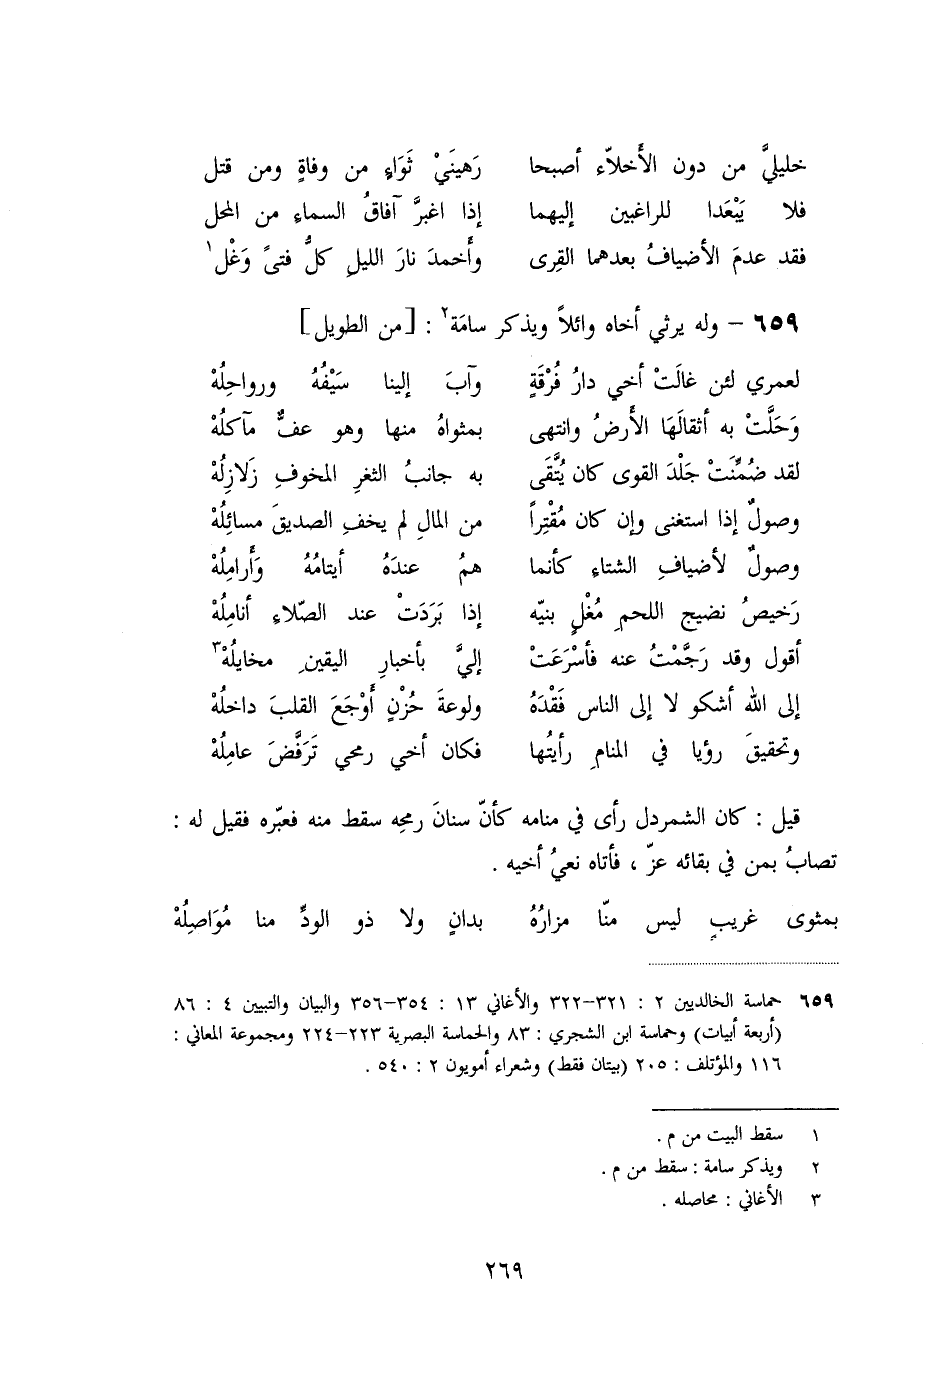 خليليَّ من دون الأَخلاّء أصبحا رَهينَيْ ثَوَاءٍ من وفاةٍ ومن قتل
فلا يَبْعَدا للراغبين إليهما إذا اغبرَّ آفاقُ السماءِ من المحل
فقد عدمَ الأضيافُ بعدهما القِرى وأَخمدَ نارَ الليلِ كلُّ فتىً وَغْل١
٦٥٩ – وله يرثي أخاه وائلاً ويذكر سامَة٢ : [من الطويل]
لعمري لئن غالَتْ أخي دارُ فُرْقَةٍ وآبَ إلينا سَيْفُهُ ورواحِلُهْ
وَحَلَّتْ به أثقالَهَا الأَرضُ وانتهى بمثواهُ منها وهو عفٌّ مآكلُهْ
لقد ضُمِّنَتْ جَلْدَ القوى كان يُتَّقَى به جانبُ الثغرِ المخوفِ زَلازِلُهْ
وصولٌ إذا استغنى وإن كان مُقْتِراً من المالِ لم يخفِ الصديقَ مسائِلُهْ
وصولٌ لأضيافِ الشتاءِ كأنما همُ عندَهُ أيتامُهُ وَأَرامِلُهْ
رَخيصُ نضيج اللحمِ مُغْلٍ بنيّه إذا بَرَدَتْ عند الصّلاءِ أنامِلُهْ
أقول وقد رَجَّمْتُ عنه فأسْرَعَتْ إليَّ بأخبارِ اليقينِ مخايلُهْ٣
إلى الله أشكو لا إلى الناس فَقْدَهُ ولوعةَ حُزْنٍ أَوْجَعَ القلبَ داخلُهْ
وتحقيقَ رؤيا في المنامِ رأيتُها فكان أخي رمحي تَرَفَّضَ عاملُهْ
قيل : كان الشمردل رأى في منامه كأنّ سنانَ رمحِه سقط منه فعبّره فقيل له :
تصابُ بمن في بقائه عزّ ، فأتاه نعيُ أخيه .
بمثوى غريبٍ ليس منّا مزارُهُ بدانٍ ولا ذو الودِّ منا مُوَاصِلُهْ
٦٥٩ حماسة الخالديين ٢ : ٣٢١–٣٢٢ والأغاني ١٣ : ٣٥٤–٣٥٦ والبيان والتبيين ٤ : ٨٦
(أربعة أبيات) وحماسة ابن الشجري : ٨٣ والحماسة البصرية ٢٢٣–٢٢٤ ومجموعة المعاني :
١١٦ والمؤتلف : ٢٠٥ (بيتان فقط) وشعراء أمويون ٢ : ٥٤٠ .
١ سقط البيت من م .
٢ ويذكر سامة : سقط من م .
٣ الأغاني : محاصله .
٢٦٩